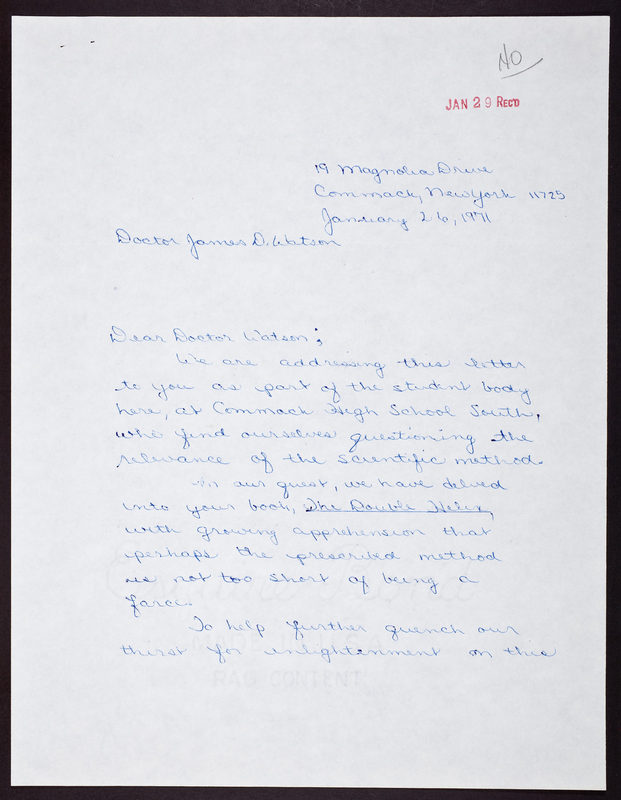 NO
JAN 29 REC'D
19 Magnolia Drive
Commack, New York 11725
January 26, 1971
Doctor James D. Watson
Dear Doctor Watson;
We are addressing this letter
to you as part of the student body
here, at Commack High School South,
who find ourselves questioning the
relevance of the scientific method.
In our quest, we have delved
into your book, The Double Helix,
with growing apprehension that
perhaps the prescribed method
is not too short of being a
farce.
To help further quench our
thirst for enlightenment on this
RAG CONTENT